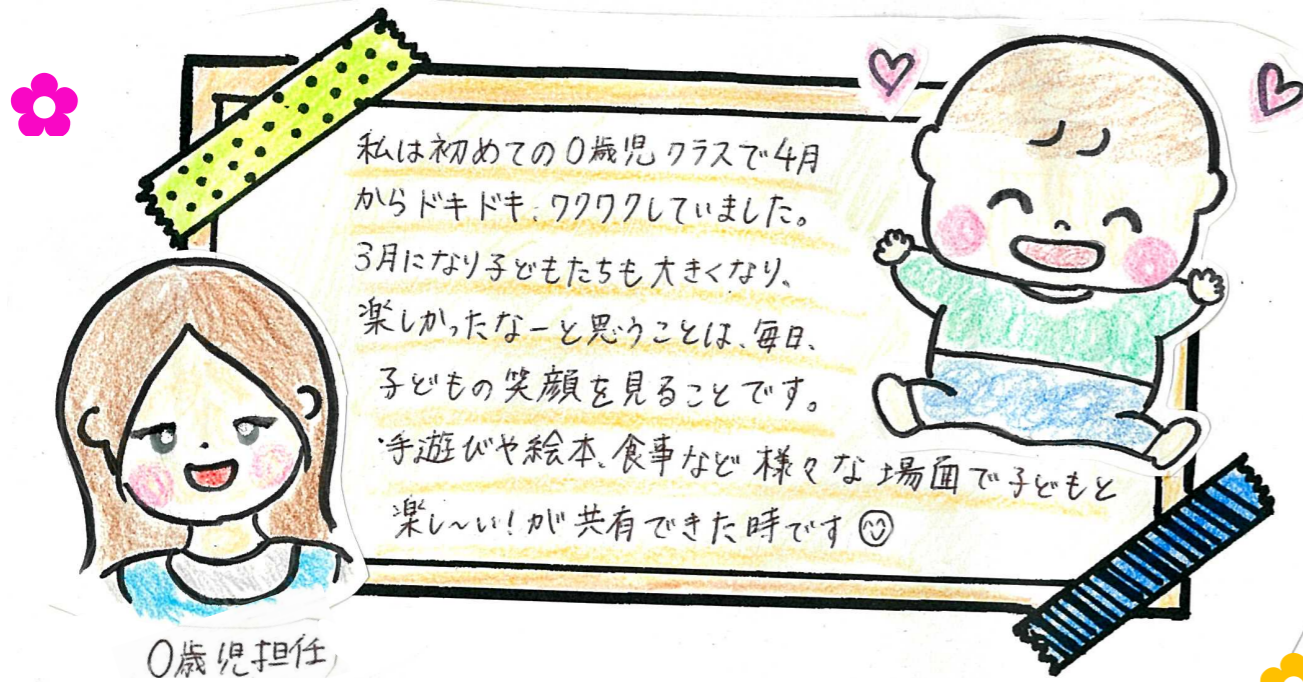 私は初めての0歳児クラスで4月
からドキドキ、ワクワクしていました。
3月になり子どもたちも大きくなり、
楽しかったなーと思うことは、毎日、
子どもの笑顔を見ることです。
手遊びや絵本、食事など様々な場面で子どもと
楽し〜い!が共有できた時です
0歳児担任